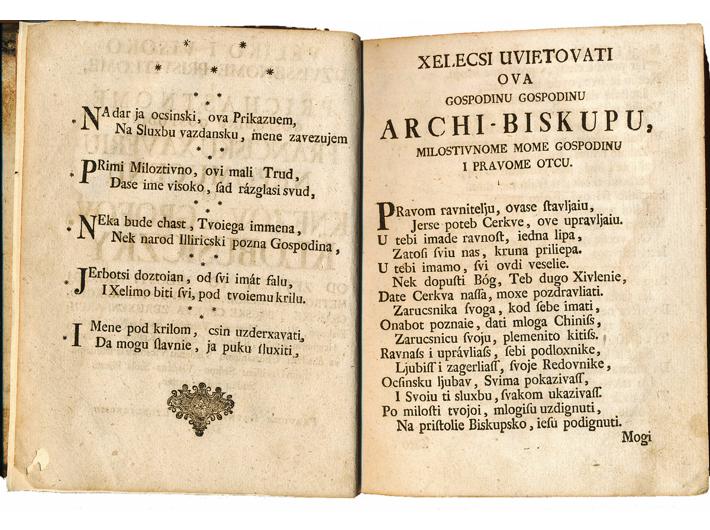 NAdar ja ocsinski, ova Prikazuem,
Na Sluxbu vazdansku, mene zavezujem
PRimi Miloztivno, ovi mali Trud,
Dase ime visoko, ſad rázglasi svud,
NEka bude chast, Tvoiega immena,
Nek narod Illiricski pozna Gospodina,
JErbotsi doztoian, od ſvi imát falu,
I Xelimo biti ſvi, pod tvoiemu krilu.
IMene pod krilom, csin uzderxavati,
Da mogu ſlavnie, ja puku ſluxiti,
XELECSI UVIETOVATI
OVA
GOSPODINU GOSPODINU
ARCHI-BISKUPU,
MILOSTIVNOME MOME GOSPODINU
I PRAVOME OTCU.
PRavom ravnitelju, ovase ſtavljaiu,
Jerse poteb Cerkve, ove upravljaiu.
U tebi imade ravnoſt, iedna lipa,
Zatoſi ſviu nas, kruna priliepa.
U tebi imamo, ſvi ovdi veselie.
Nek dopuſti Bóg, Teb dugo Xivlenie,
Date Cerkva naſſa, moxe pozdravljati.
Zarucsnika ſvoga, kod ſebe imati,
Onabot poznaie, dati mloga Chiniſs,
Zarucsnicu ſvoju, plemenito kitiſs.
Ravnaſs i uprávliaſs, ſebi podloxnike,
Ljubiſſ i zagerliaſſ, ſvoje Redovnike,
Ocſinsku ljubav, Svima pokazivaſſ,
I Svoiu ti sluxbu, ſvakom ukazivaſſ.
Po miloſti tvojoi, mlogiſu uzdignuti,
Na priſtolie Biskupsko, ieſu podignuti.
Mogi